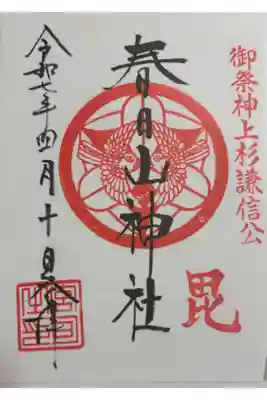 御祭神上杉謙信公
毘
春日山神社
令和七年四月十日参拝